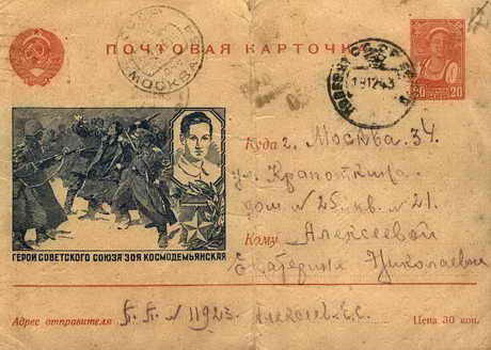 ПОЧТОВАЯ КАРТОЧКА
СССР
МОСКВА
СССР
191243
20 20
Куда г. Москва. 34.
ул. Крапоткина.
дом № 25. кв. № 21.
Кому Алексеевой
Екатерине Николаевой
ГЕРОЙ СОВЕТСКОГО СОЮЗА ЗОЯ КОСМОДЕМЬЯНСКАЯ
Адрес отправителя П. П. № 11923. Алексеев. Е.С.
Цена 30 коп.